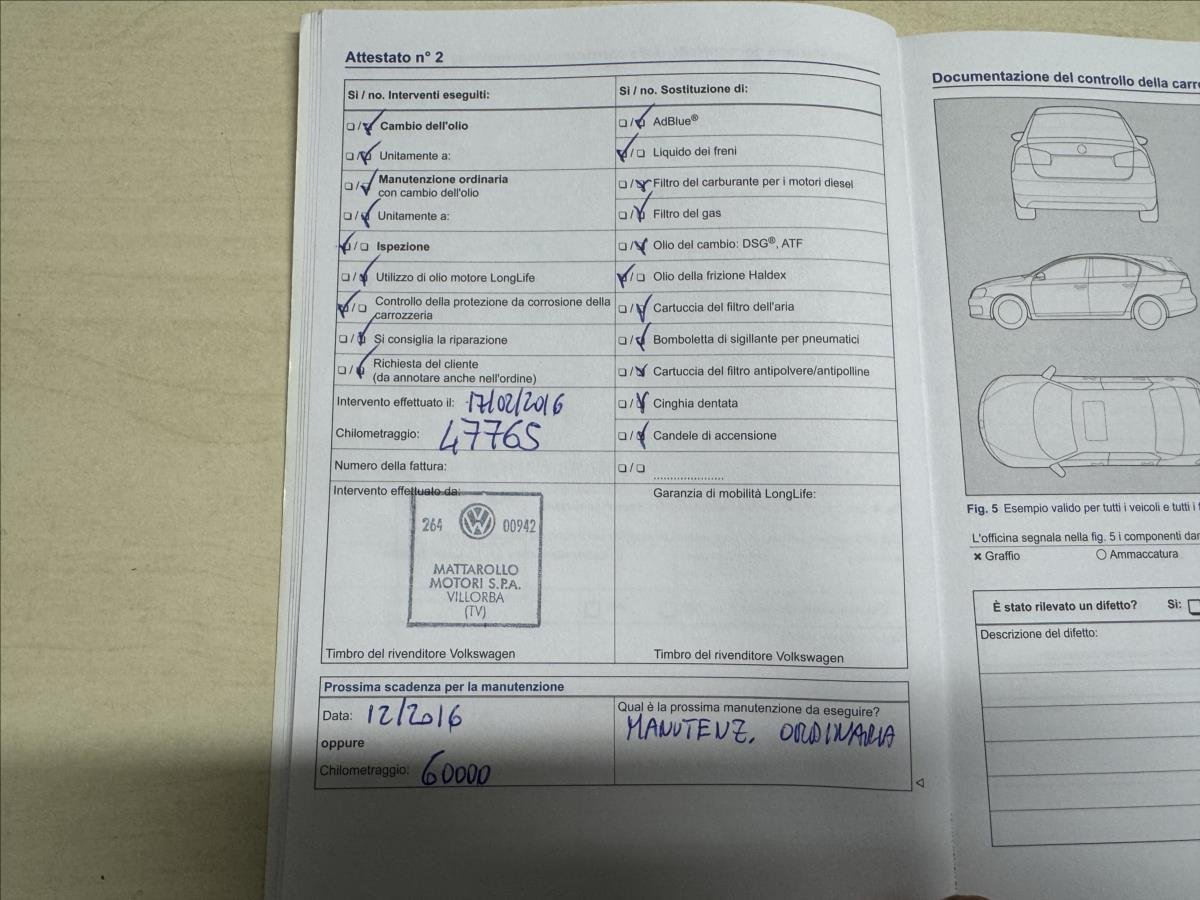 Attestato n° 2
Si / no. Interventi eseguiti:
Cambio dell'olio
Unitamente a:
Manutenzione ordinaria
con cambio dell'olio
Unitamente a:
Ispezione
Utilizzo di olio motore LongLife
Controllo della protezione da corrosione della
carrozzeria
Si consiglia la riparazione
Richiesta del cliente
(da annotare anche nell'ordine)
Intervento effettuato il: 17/02/2016
Chilometraggio: 47765
Numero della fattura:
Intervento effettuato da:
264 00942
MATTAROLLO
MOTORI S.P.A.
VILLORBA
(TV)
Timbro del rivenditore Volkswagen
Si / no. Sostituzione di:
AdBlue®
Liquido dei freni
Filtro del carburante per i motori diesel
Filtro del gas
Olio del cambio: DSG®, ATF
Olio della frizione Haldex
Cartuccia del filtro dell'aria
Bomboletta di sigillante per pneumatici
Cartuccia del filtro antipolvere/antipolline
Cinghia dentata
Candele di accensione
Garanzia di mobilità LongLife:
Timbro del rivenditore Volkswagen
Prossima scadenza per la manutenzione
Data: 12/2016
oppure
Chilometraggio: 60000
Qual è la prossima manutenzione da eseguire?
MANUTENZ. ORDINARIA
Documentazione del controllo della
Fig. 5 Esempio valido per tutti i veicoli e tutti i
L'officina segnala nella fig. 5 i componenti
× Graffio
Ammaccatura
È stato rilevato un difetto? Si:
Descrizione del difetto: